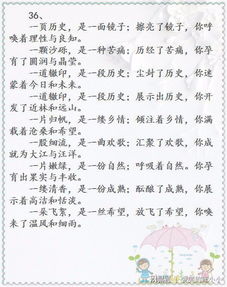 36、
一页历史，是一面镜子；擦亮了镜子，你呼
唤着理性与良知。
一颗沙砾，是一种苦痛；历经了苦痛，你孕
育了圆润与晶莹。
一道辙印，是一段历史；尘封了历史，你迷
蒙着今日和未来。
一道辙印，是一段历史；展示出历史，你开
发了近林和远山。
一片归帆，是一缕乡情；倾注着乡情，你满
载着沧桑和希望。
一股细流，是一曲欢歌；汇聚了欢歌，你成
就为大江与汪洋。
一片嫩绿，是一份自然；呼吸着自然。你孕
育出果实与丰收。
一缕清香，是一份成熟；酝酿了成熟，你展
示着高洁和恬淡。
一朵飞絮，是一丝希望，放飞了希望，你唤
来了温风和细雨。